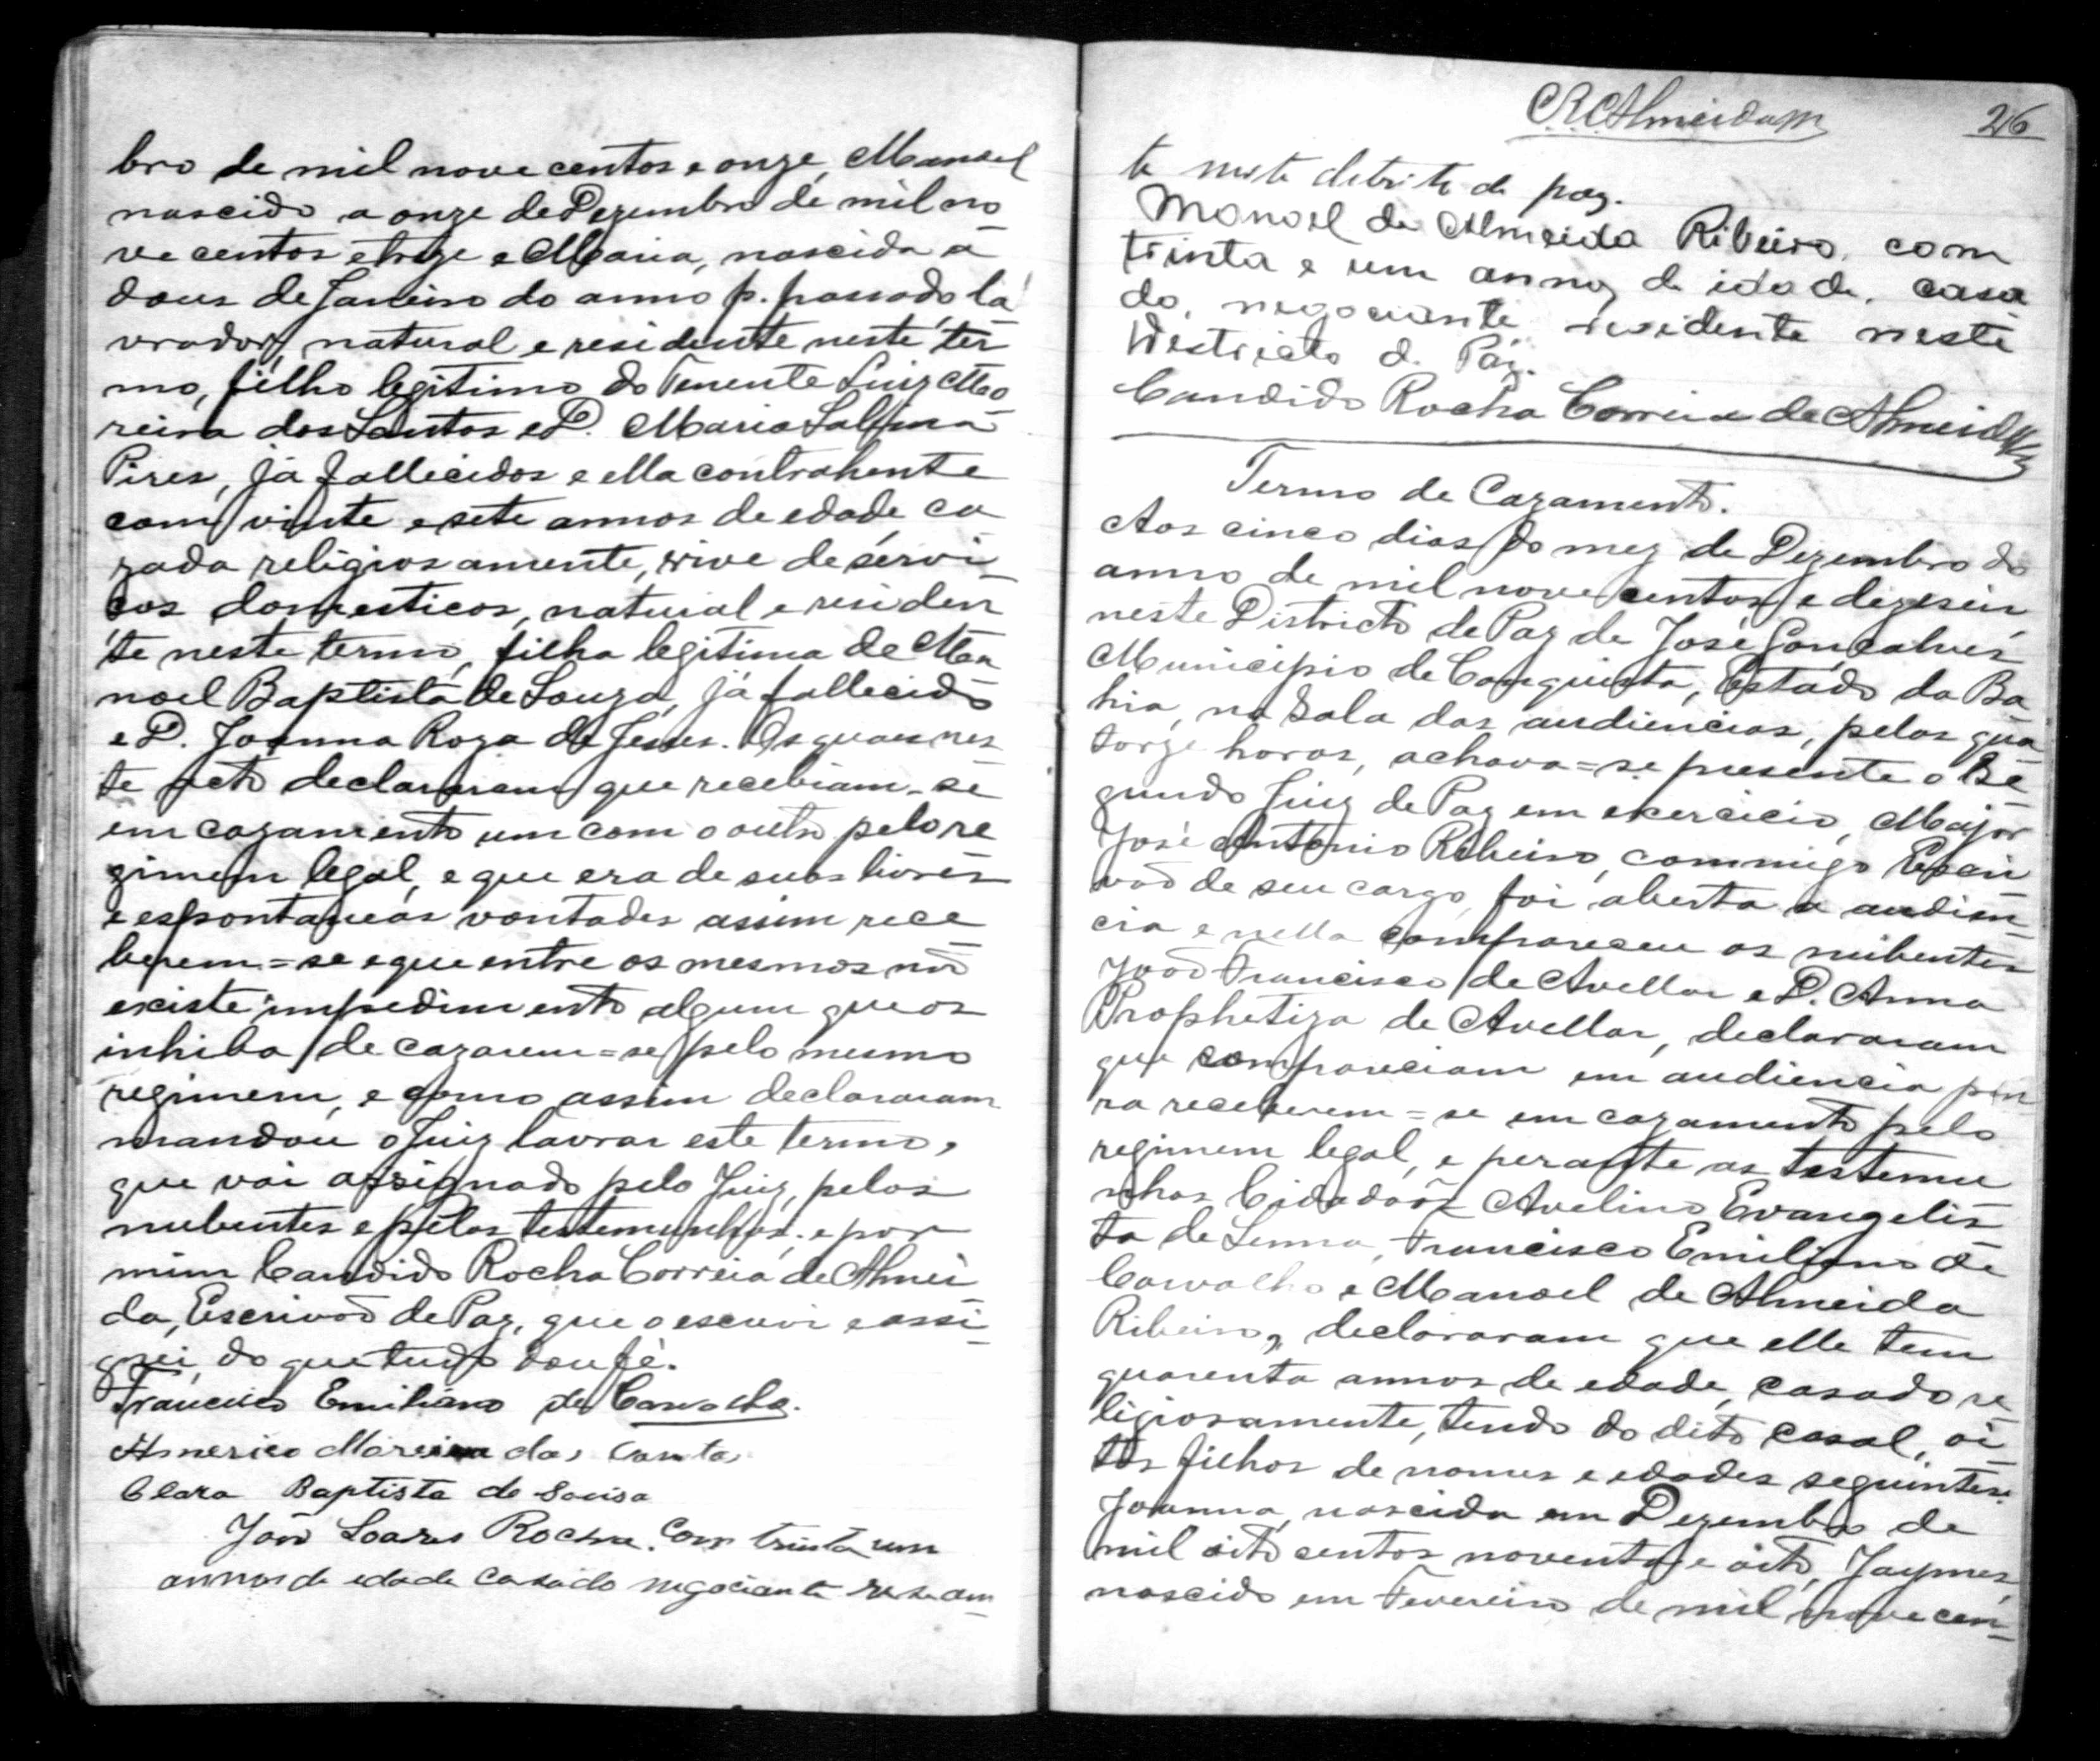 bro de mil nove centos e onze, Manoel
nascido a onze de Dezembro de mil no
ve centos e treze e Maria, nascida a
dous de Janeiro do anno p. passado, la
vrador, natural e residente neste ter
mo, filho legitimo do Tenente Luiz Mo
reira dos Santos e D. Maria
Pires, já fallecidos e ella contrahente
com vinte e sete annos de edade, ca
zada religiosamente, vive de servi
ços domesticos, natural e residen
te neste termo, filha legitima de Ma
noel Baptista de Souza, já fallecido
e D. Joanna Roza de Jesus. Os quaes nes
te acto declararam que recebiam-se
em cazamento um com o outro pelo re
gimem legal, e que era de suas livres
e espontaneas vontades assim rece
berem=se e que entre os mesmos não
existe impedimento algum que os
inhiba de cazarem=se pelo mesmo
regimem, e como assim declararam
mandou o Juiz lavrar este termo,
que vai assignado pelo Juiz, pelos
nubentes e pelas testemunhas, e por
mim Candido Rocha Correia de Almei
da, Escrivão de Paz, que o escrevi e assi-
gnei, do que tudo dou fé.
Francisco Emiliano de Carvalho.
Americo Moreira dos Santos
Clara Baptista de Sousa
João Soares Rocha. Com trinta um
annos de edade casado negociante
C R C Almeida 26
te neste detrito de paz.
Manoel de Almeida Ribeiro, com
trinta e um annos de idade, casa
do, negociante residente neste
Destricto de Paz.
Candido Rocha Correia de Almeida
Termo de Cazamento.
Aos cinco dias do mez de Dezembro do
anno de mil nove centos e dezeseis
neste Districto de Paz de José Gonçalves
Municipio de Conquista, Estado da Ba
hia, na Sala das audiencias, pelas qua
torze horas, achava=se presente o Se
gundo Juiz de Paz em exercicio, Major
José Antonio Ribeiro, commigo Escri
vão de seu cargo, foi aberta a audien-
cia e nella compareceu os nubentes
João Francisco de Avellar e D. Anna
Prophetiza de Avellar, declararam
que compareciam em audiencia pa
ra receberem=se em cazamento pelo
regimem legal, e perante as testemu
nhas Cidadãos Avelino Evangelis
ta de Senna, Francisco Emiliano de
Carvalho e Manoel de Almeida
Ribeiro, declararam que elle tem
quarenta annos de edade, casado re
ligiosamente, tendo do dito casal, oi
to filhos de nomes e edades seguintes:
Joanna, nascida em Dezembro de
mil oito centos noventa e oito, Jaymes,
nascido em Fevereiro de mil nove cen-